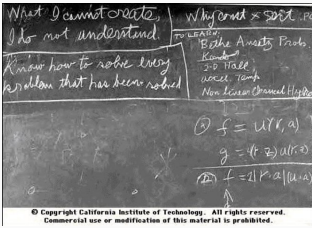 What I cannot create,
I do not understand.
Know how to solve every
problem that has been solved
Why const × sort .PO
TO LEARN:
Bethe Ansatz Prob.
Kondo
2-D Hall
accel. Temp
Non Linear Classical Hydro
f = u(r, a)
g = 4(r·z) u(r, z)
f = 2|r·a|(u·a)
© Copyright California Institute of Technology. All rights reserved.
Commercial use or modification of this material is prohibited.